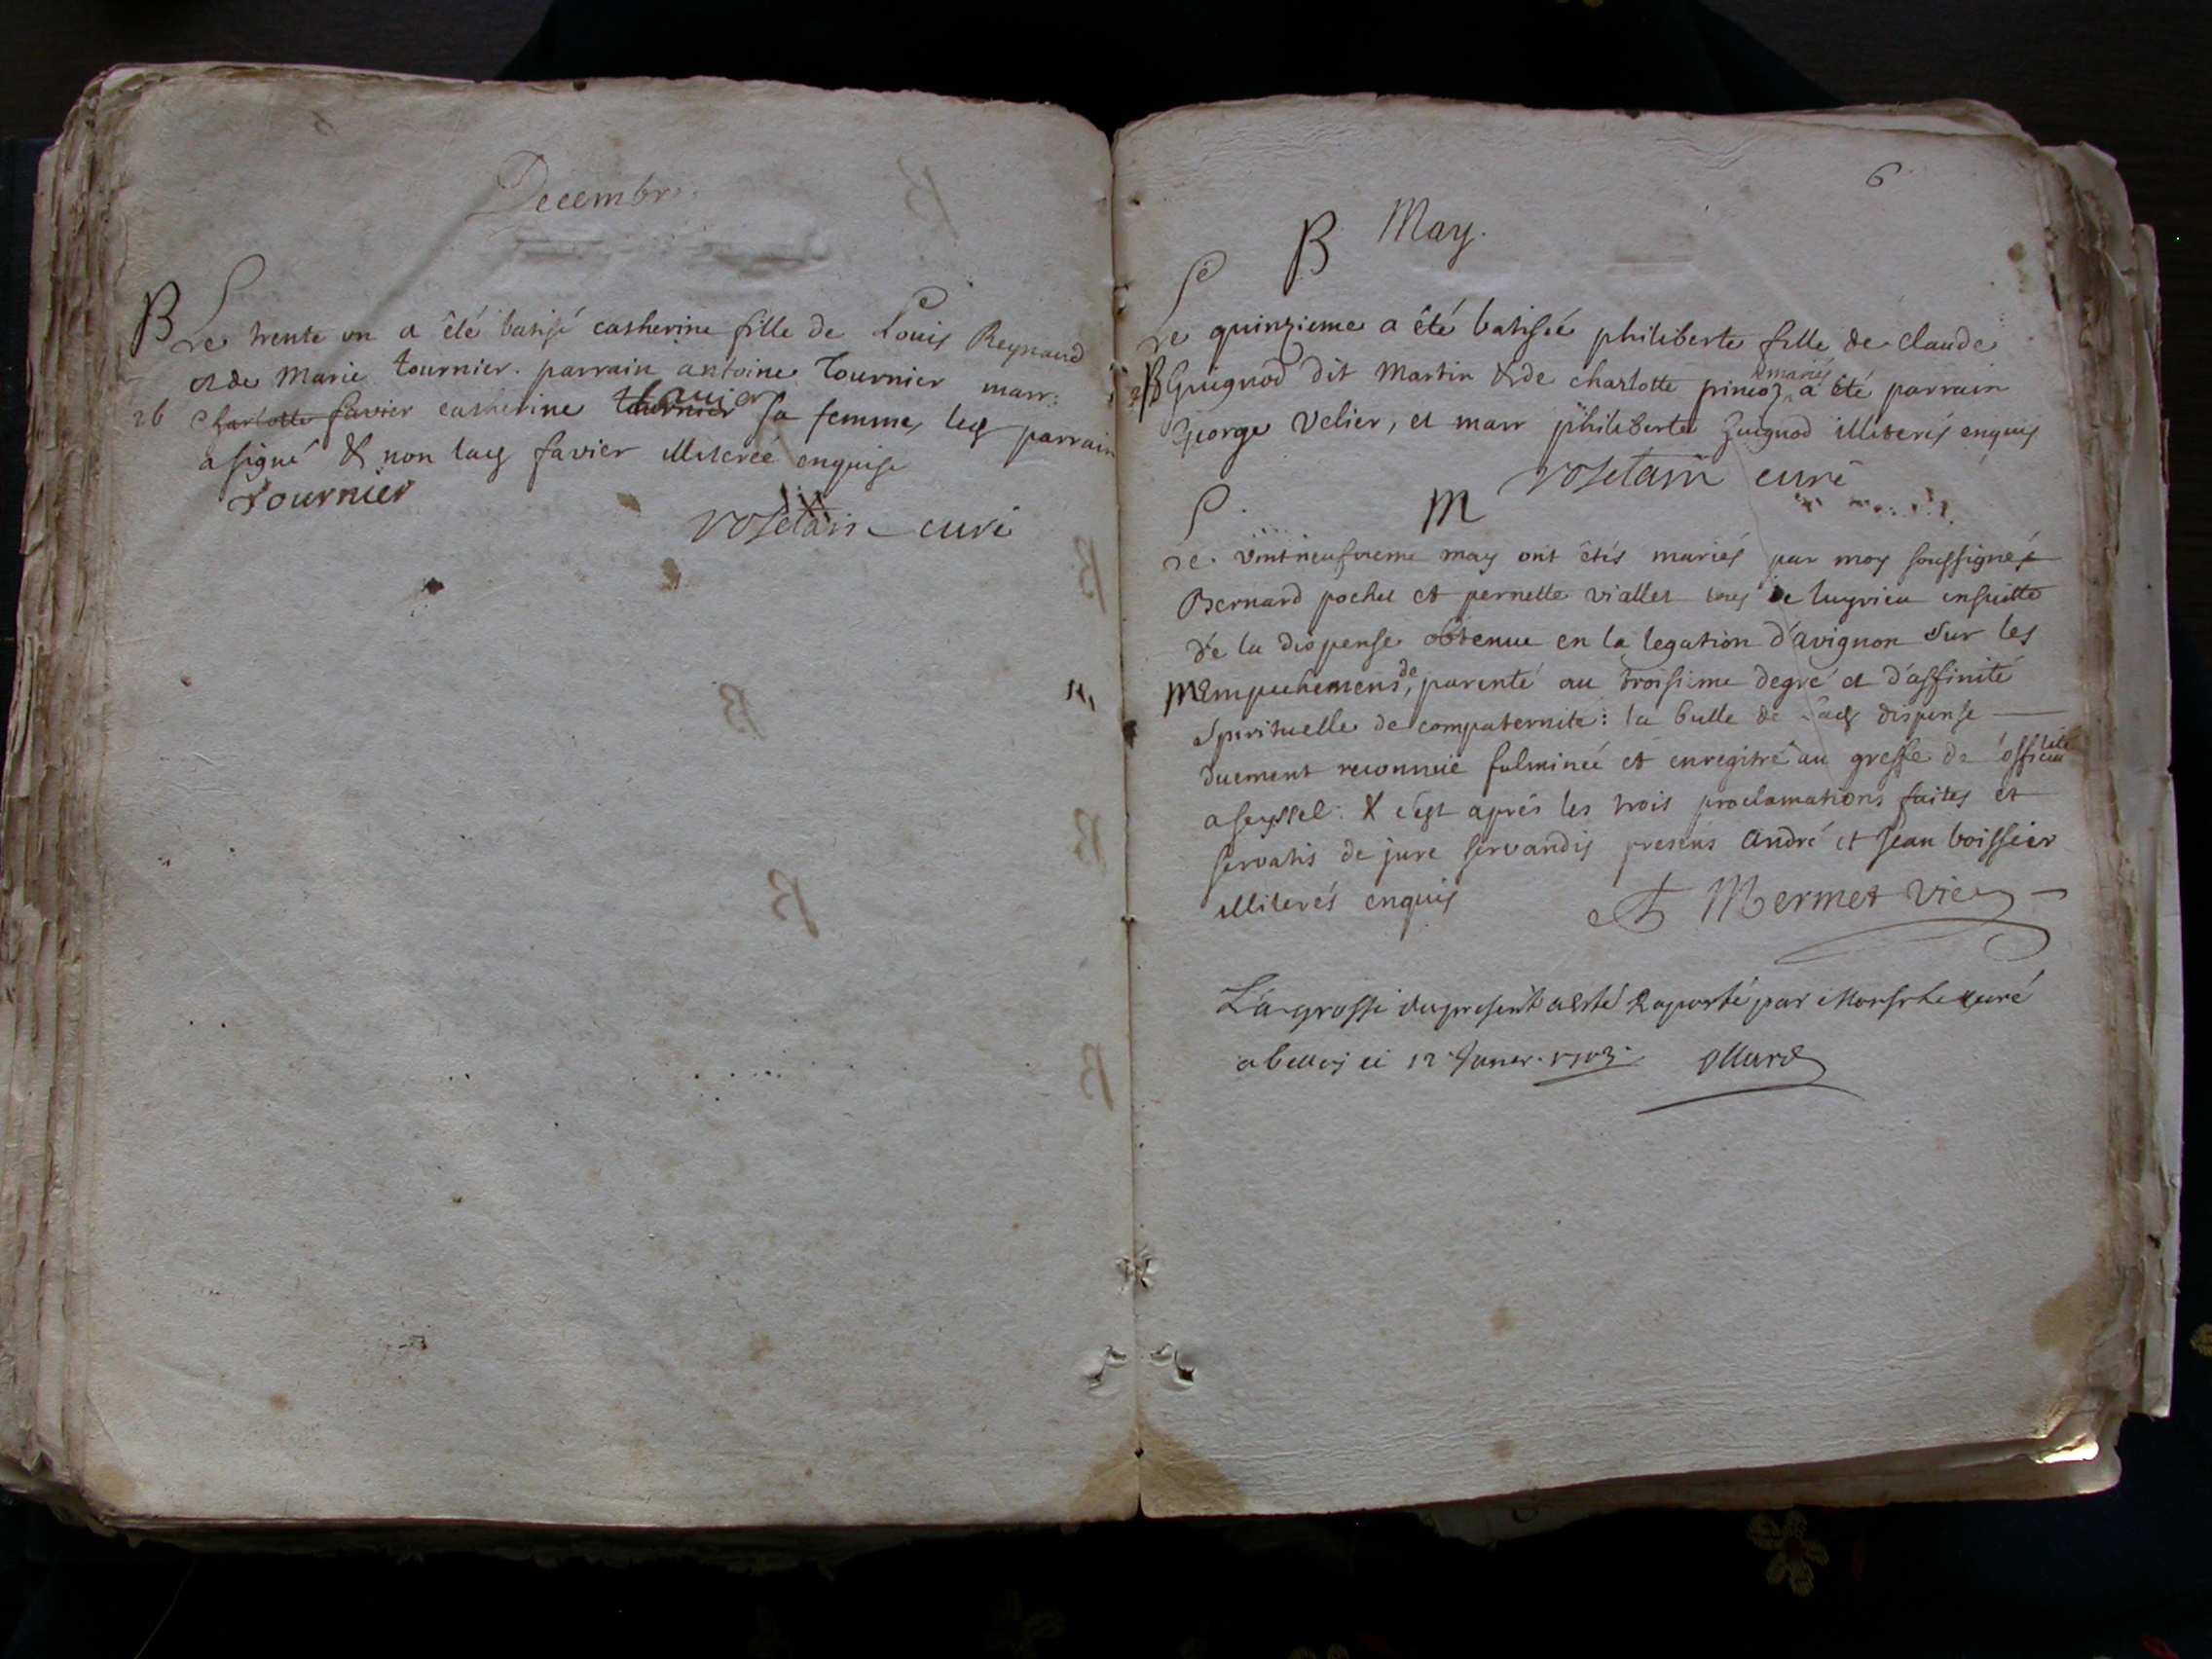 Decembre
B Le trente un a êté batisé catherine fille de Louis Reynaud
et de Marie tournier. parrain antoine Tournier marr:
26 charlotte favier catherine favier sa femme, led parrain
a signé & non lad favier illiterée enquise
Tournier
Vosetain curé
6
B May.
Le quinzieme a êté batisée philiberte fille de claude
B Guignod dit Martin & de charlotte pineoz mariés a êté parrain
George Velier, et marr philiberte Guignod illiterés enquis
Vosetain curé
M
Le vint neufvieme may ont êtés mariés par moy soussigné
Bernard pochet et pernette viallet tous de luyrieu ensuitte
de la dispense obtenue en la legation d'avignon sur les
M Empechemens, de parenté au troisieme degré et d'affinité
Spirituelle de compaternité: la bulle de lad dispense
duement reconnuë fulminée et enregitré au greffe de officialité
a seyssel: & c'est aprés les trois proclamations faites et
servatis de jure servandis presens André et Jean boissier
illiterés enquis
Mermet vic
La grosse du present a esté Raporté par Monsr le curé
a belley ce 12 Janer. 1703. Ollard